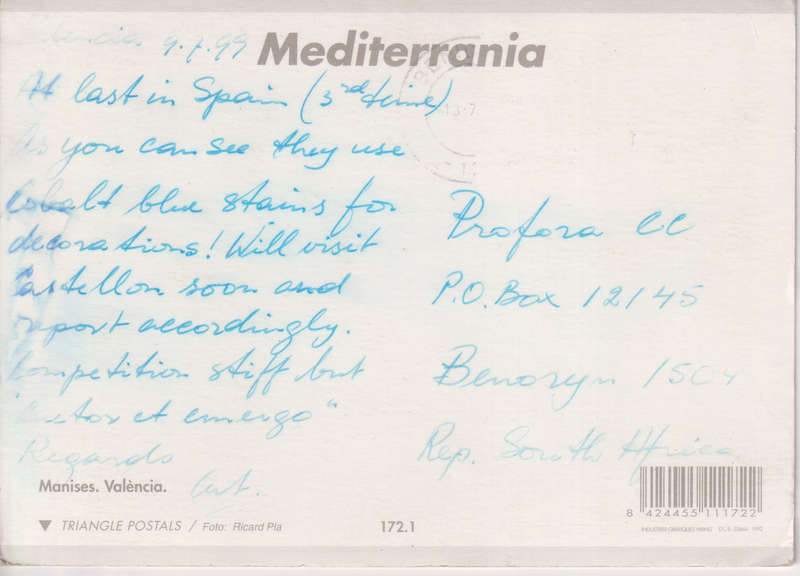 9.7.99
Mediterrania
At last in Spain (3rd time)
As you can see they use
Cobalt blue stains for
decorations! Will visit
Castellon soon and
report accordingly.
Competition stiff but
et emergo"
Regards
Manises. València.
TRIANGLE POSTALS / Foto: Ricard Pla
172.1
Profora CC
P.O. Box 12145
Benoryn 1504
Rep. South Africa
8 424455 111722